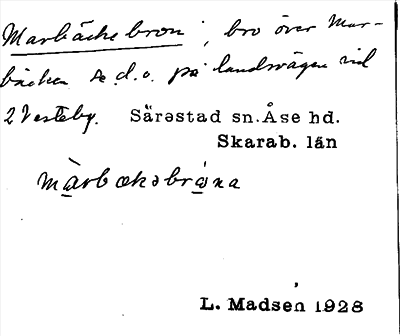 Marbäcksbron, bro över Mar-
bäcken se d.o. på landsvägen vid
2 Vesteby. Särestad sn. Åse hd.
Skarab. län
L. Madsen 1928